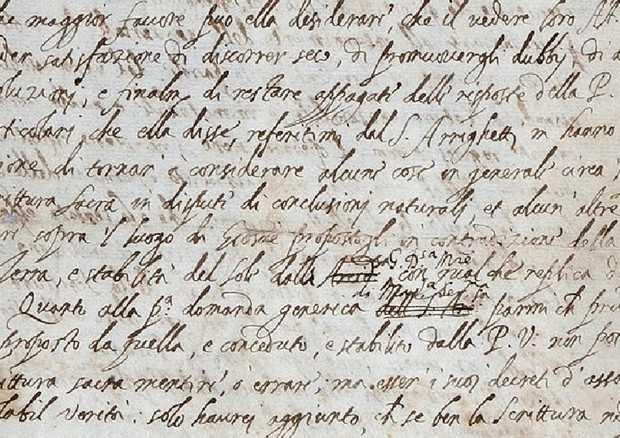 maggior favore può ella desiderare, che il vedere loro
satisfazione di discorrer seco, di promuovergli dubbij, di
oluzioni, e finalm. di restare appagati delle risposte della P.
rticolari che ella disse, referitimi dal S. Arrighetti m' hanno
ione di tornare a considerare alcune cose in generale circa
rittura sacra in dispute di conclusioni naturali, et alcun' altre
sopra il luogo di Giosuè propostogli in contradizione della
Terra, e stabilità del Sole dalla G. D.sa M.re con qualche replica
di Mad.a Ser.sa
Quanto alla p.a domanda generica parmi ch
proposto da quella, e conceduto, e stabilito dalla P. V. non
ittura sacra mentire, o errare, ma esser i suoi decreti d'
labil verità. solo haurei aggiunto, ch se ben la Scrittura